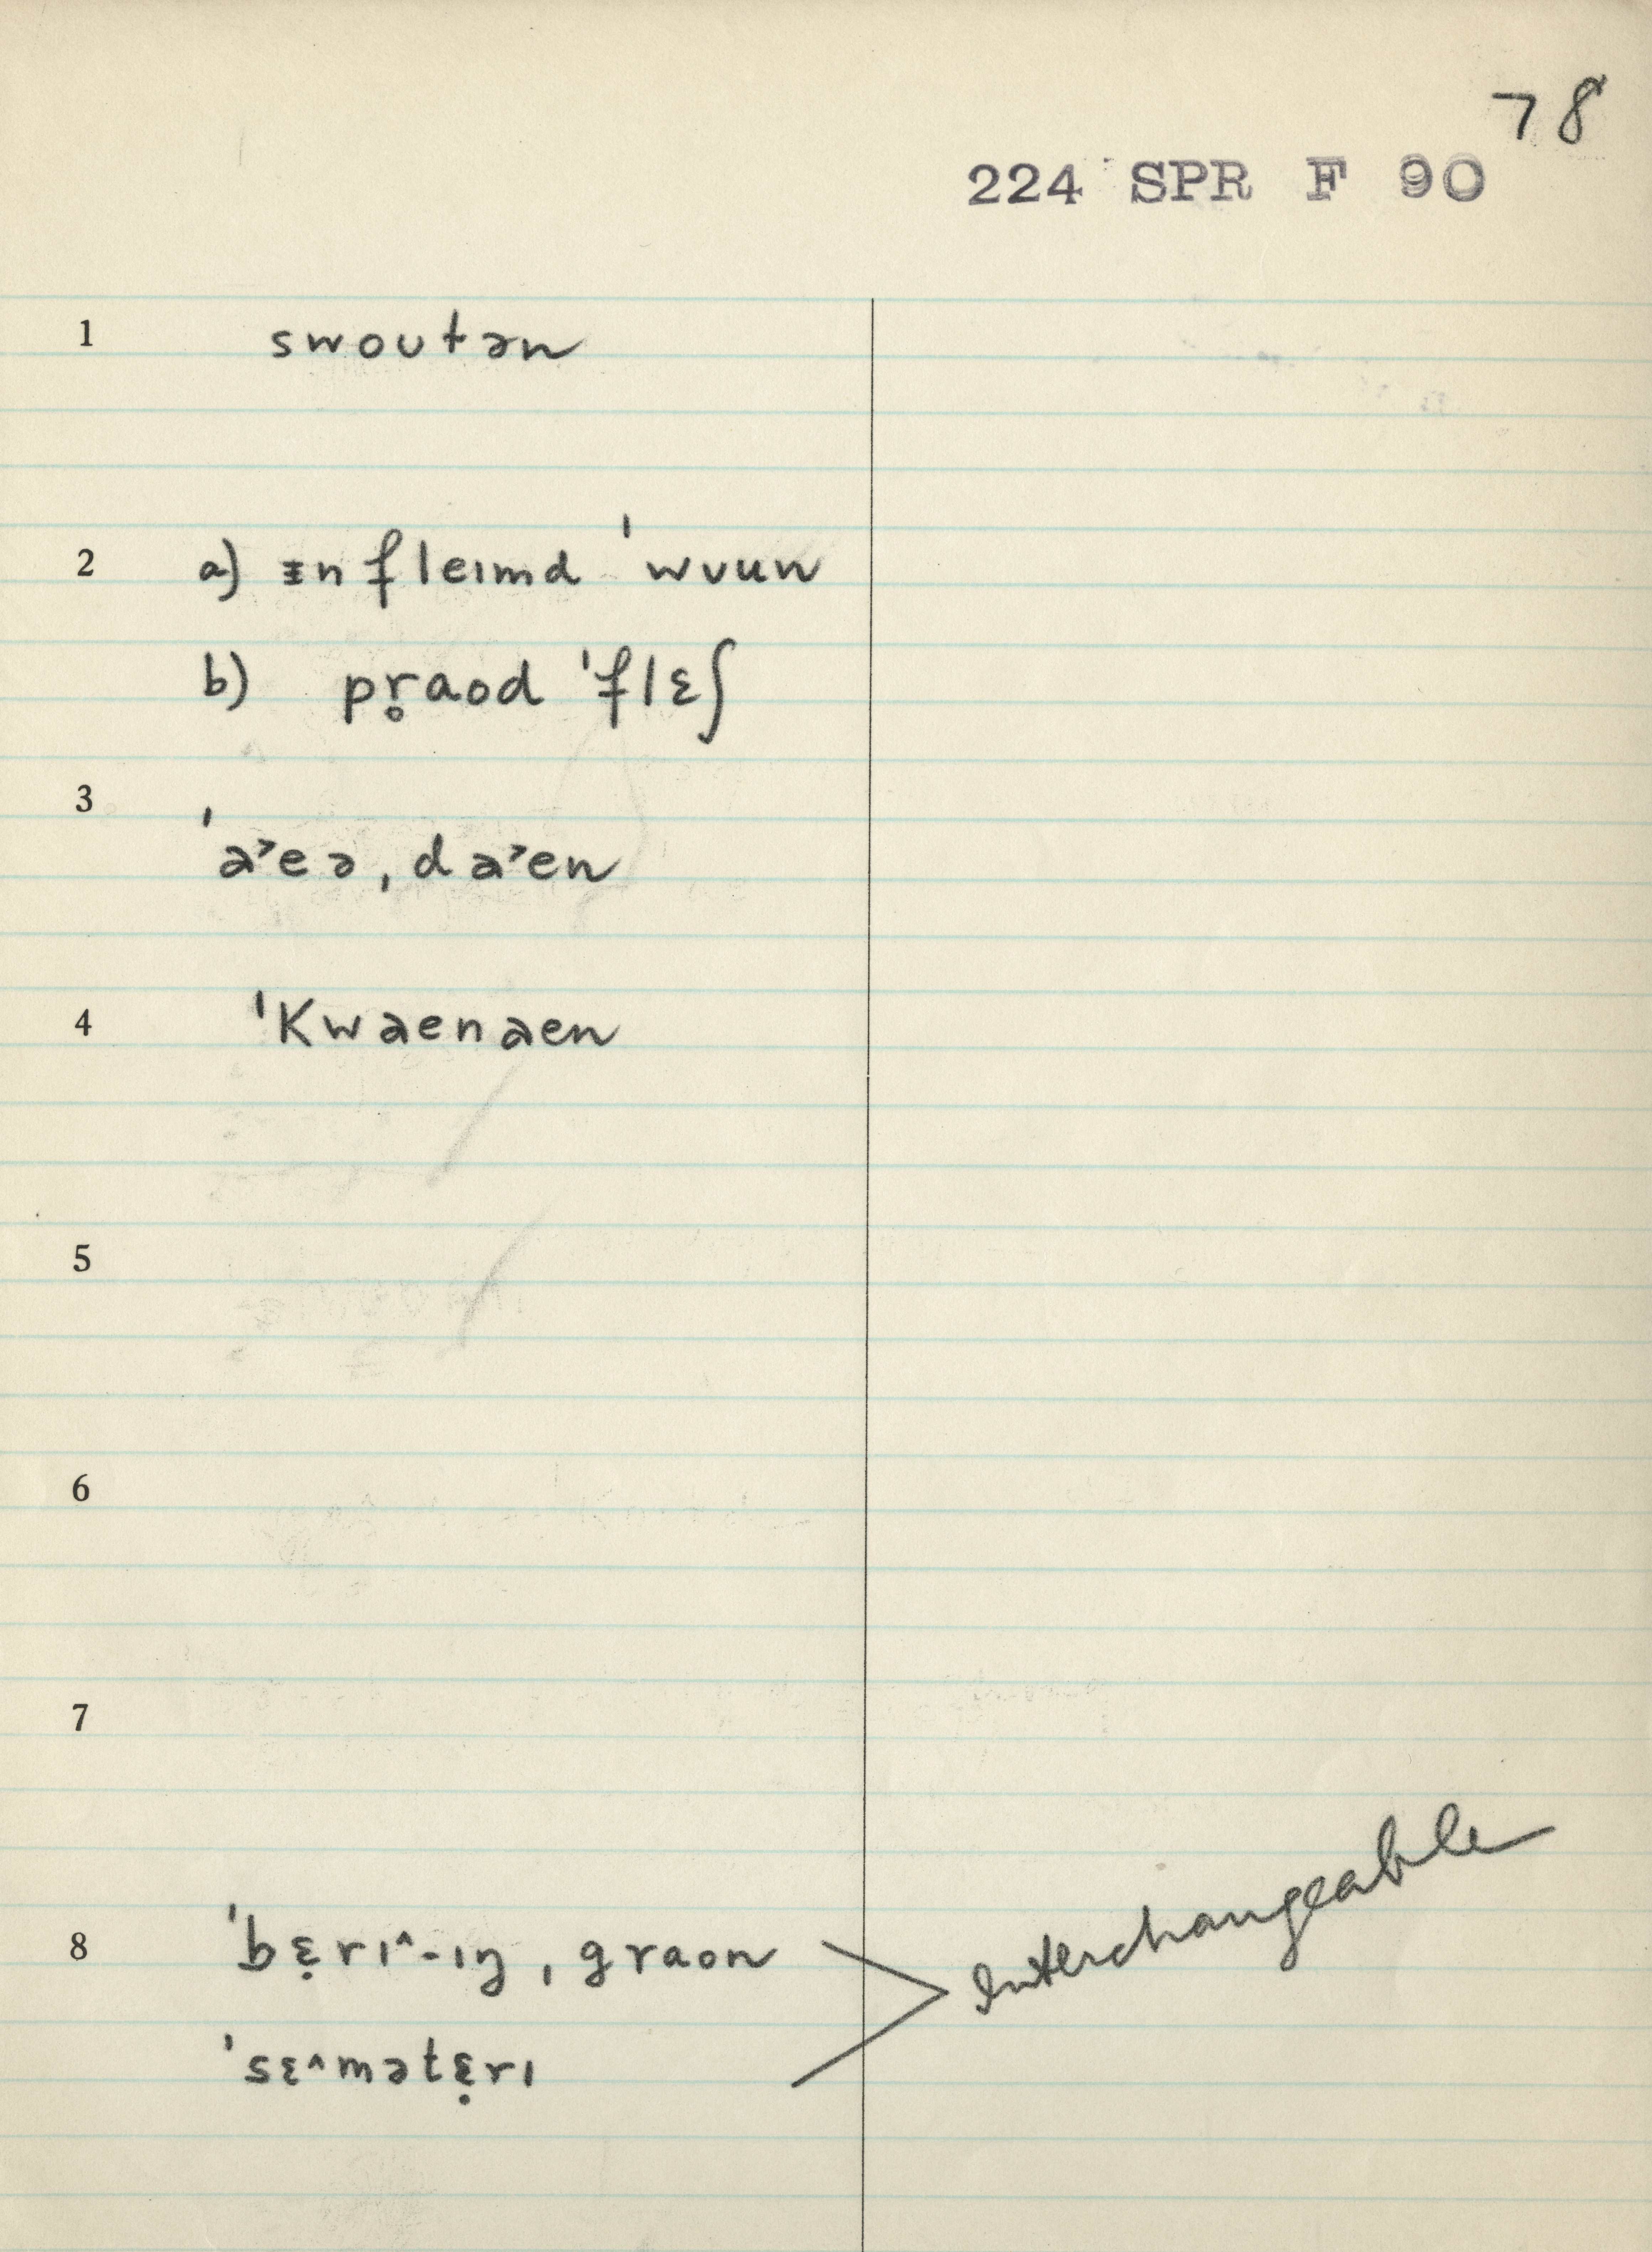 78
224 SPR F 90
1 swoutən
2 a) ᵻnfleɪmd ˈwuun
b) pr̥aod ˈflɛʃ
3 ˈa˃eə, da˃en
4 ˈKwaenaen
5
6
7
8 ˈbɛ̣rɪ^-ɪŋ, graon
ˈsɛ^mətɛ̣rɪ
Interchangeable